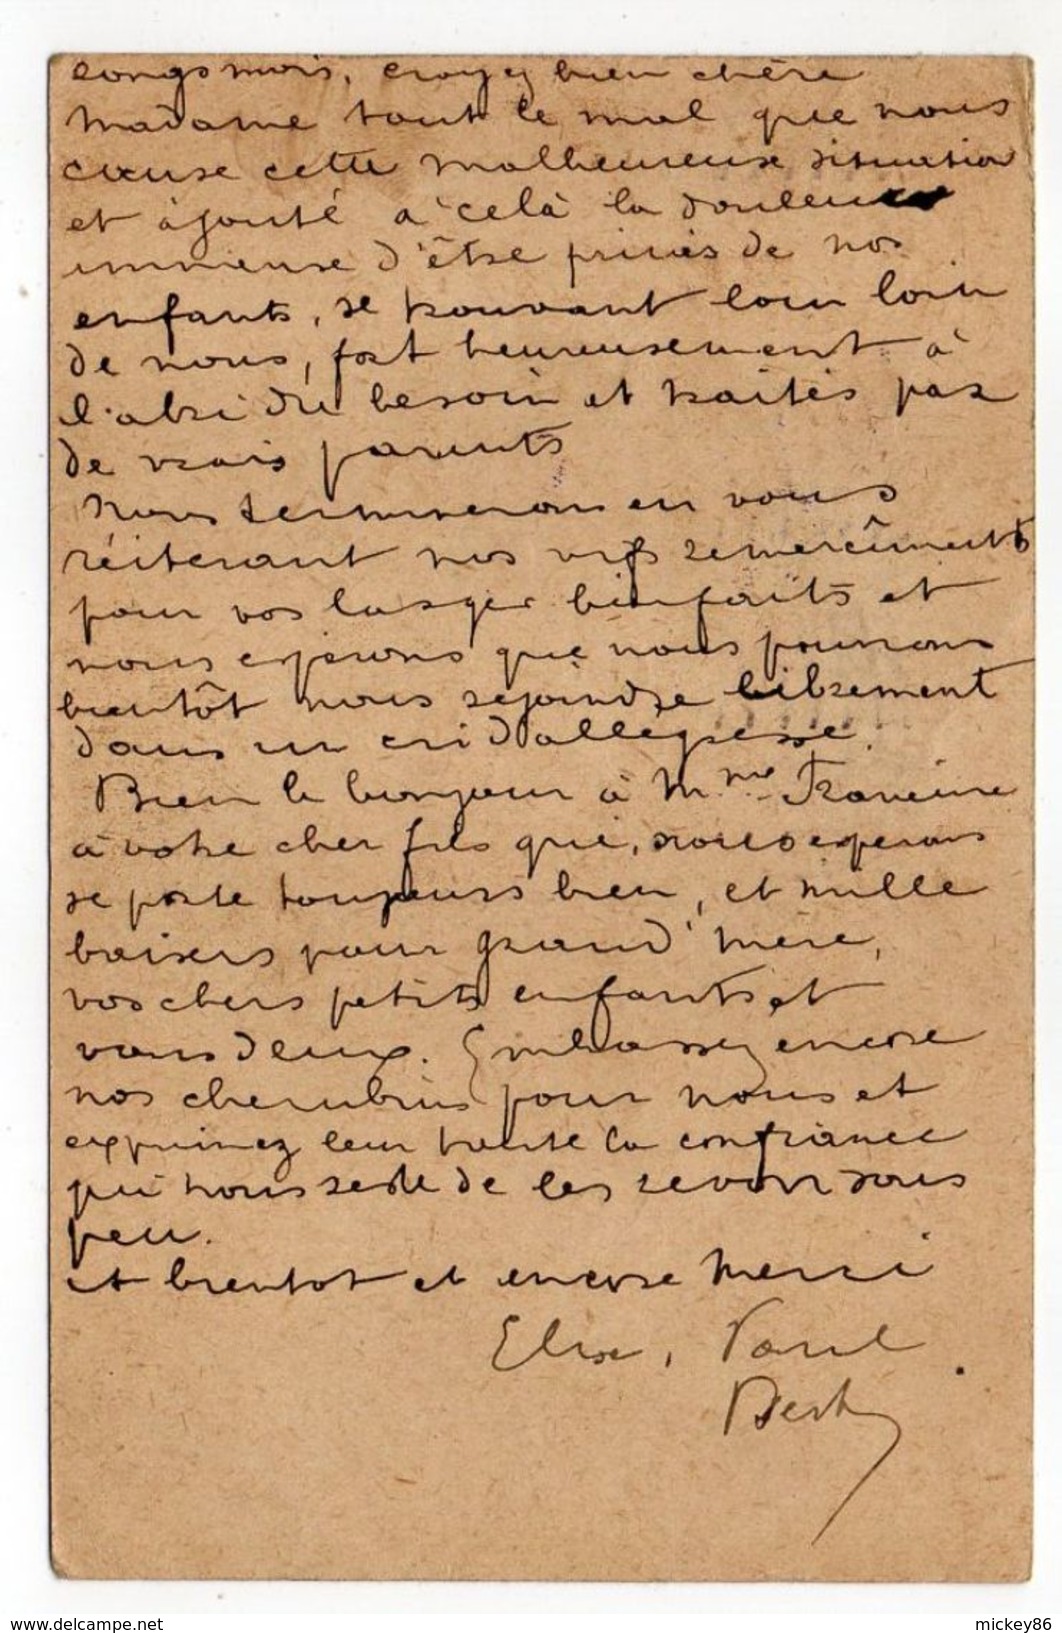 longs mois, croyez bien chère
Madame tout le mal que nous
cause cette malheureuse situation
et ajouté à celà la douleur
immense d'être privés de nos
enfants, se trouvant loin loin
de nous, fort heureusement à
l'abri du besoin et traités par
de vrais parents
Nous terminerons en vous
réiterant nos vifs remercîments
pour vos larges bienfaits et
nous esperons que nous pourrons
bientôt nous rejoindre librement
dans un cri d'allegresse.
Bien le bonjour à Mme
à votre cher fils qui, nous esperons
se porte toujours bien, et mille
baisers pour grand' mère,
vos chers petits enfants et
vous deux. Embrassez encore
nos cherubins pour nous et
exprimez leur toute la confiance
qui nous reste de les revoir sous
peu.
et bientot et encore merci
Elise, Paul
Berthe
delcampe.net
mickey86